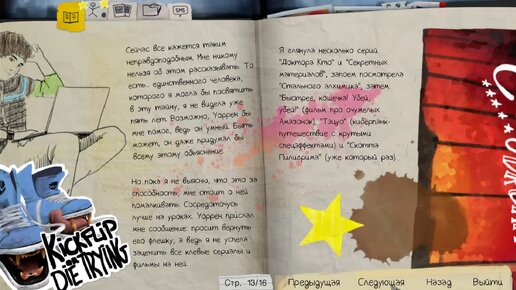 SMS
Сейчас все кажется таким
неправдоподобным. Мне никому
нельзя об этом рассказывать. То
есть... единственного человека,
которого я могла бы посвятить
в эту тайну, я не видела уже
пять лет. Возможно, Уоррен бы
мне помог, ведь он умный. Быть
может, он даже придумал бы
всему этому объяснение.
Но пока я не выясню, что это за
способность, мне стоит о ней
помалкивать. Сосредоточусь
лучше на уроках. Уоррен прислал
мне сообщение: просит вернуть
его флешку, а ведь я не успела
заценить все клевые сериалы и
фильмы на ней.
KICKFLIP
OR
DIE TRYING
Я глянула несколько серий
"Доктора Кто" и "Секретных
материалов", запоем посмотрела
"Стального алхимика", затем
"Быстрее, кошечка! Убей,
убей!" (фильм про очумелых
Амазонок), "Тэцуо" (киберпанк-
путешествие с крутыми
спецэффектами) и "Скотта
Пилигрима" (уже который раз).
Стр. 13/16
Предыдущая Следующая Назад Выйти